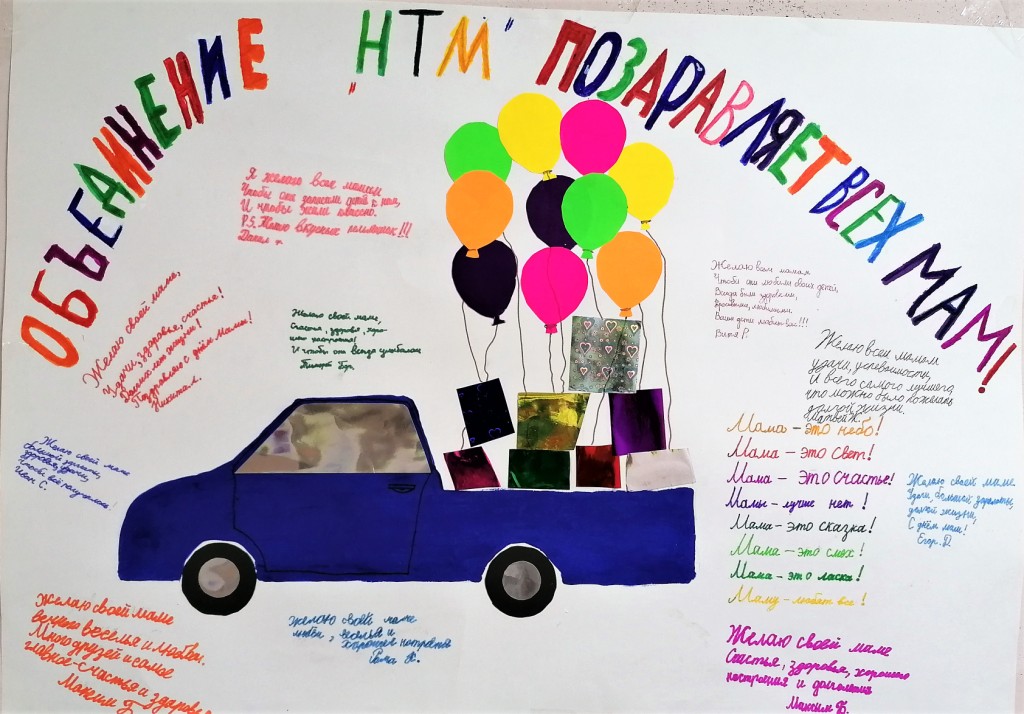 ОБЪЕДИНЕНИЕ „НТМ" ПОЗДРАВЛЯЕТ ВСЕХ МАМ!
Я желаю всем мамам
Чтобы они записали детей к нам,
И чтобы жили классно.
P.S. Желаю вкусных
Желаю своей маме,
Удачи, здоровья, счастья!
Долгих лет жизни!
Поздравляю с днём Мамы!
Никита Л.
Желаю своей маме,
Счастья, здоровья, хоро-
шего настроения!
И чтобы она всегда улыбалась
Желаю всем мамам
Чтобы они любили своих детей,
Всегда были здоровыми,
Красивыми,
Ваши дети любят вас!!!
Витя Р.
Желаю всем мамам
удачи, успешности,
И всего самого лучшего
что можно было пожелать
долгой жизни.
Матвей Ж.
Мама – это небо!
Мама – это Свет!
Мама – это Счастье!
Мамы – лучше нет!
Мама – это сказка!
Мама – это смех!
Мама – это ласка!
Маму – любят все!
Желаю своей маме
большой
здоровья, удачи,
Чтобы всё получалось!
Иван С.
Желаю своей маме
Удачи, большой зарплаты,
долгой жизни,
С днём мам!
Егор. Д
Желаю своей маме
вечного веселья и любви.
Много друзей и самое
главное – счастья и здоровья
Максим Г
Желаю своей маме
любви, веселья и
хорошего настроения
Рома К.
Желаю своей маме
Счастья, здоровья, хорошего
настроения и долголетия
Максим Б.